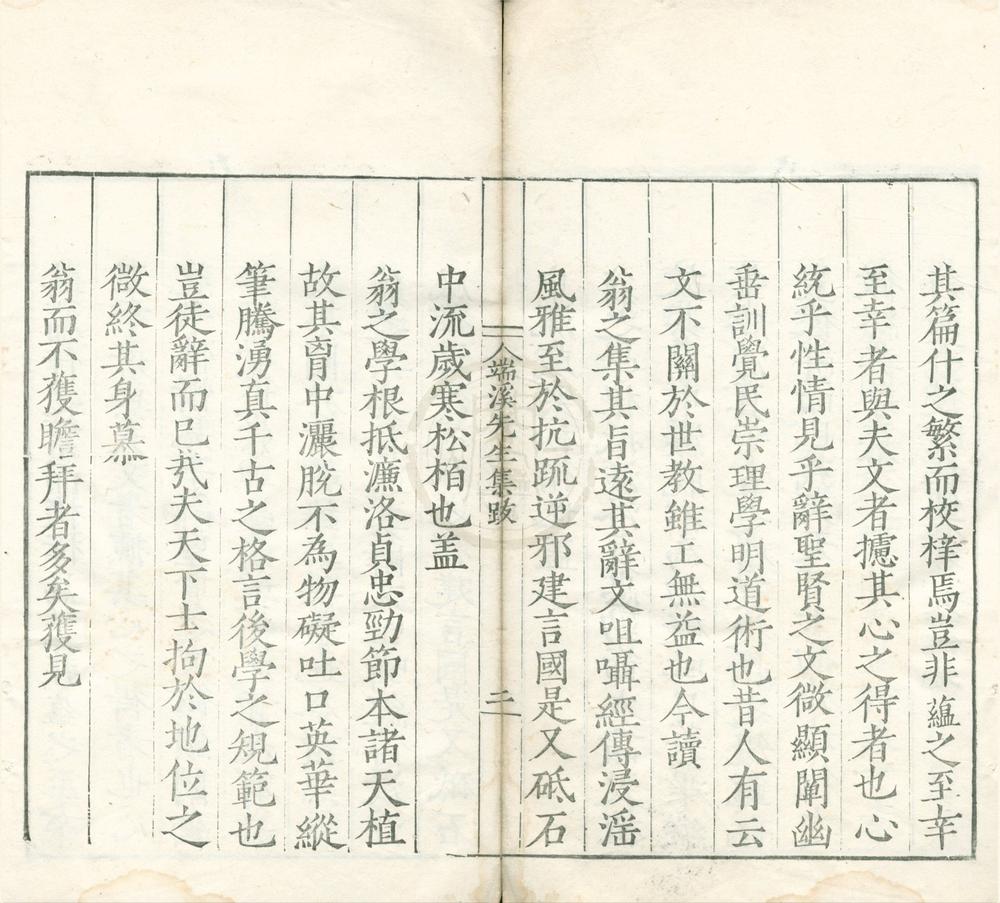 其篇什之繁而校梓焉豈非蘊之至幸
至幸者與夫文者攄其心之得者也心
統乎性情見乎辭聖賢之文微顯闡幽
垂訓覺民崇理學明道術也昔人有云
文不關於世教雖工無益也今讀
翁之集其旨遠其辭文咀嚼經傳浸滛
風雅至於抗䟽逆邪建言國是又砥石
端溪先生集跋
二
中流歲寒松栢也盖
翁之學根抵濂洛貞忠勁節本諸天植
故其胷中灑脫不為物礙吐口英華縱
筆騰湧真千古之格言後學之規範也
豈徒辭而已㢤夫天下士拘於地位之
微終其身慕
翁而不獲瞻拜者多矣獲見